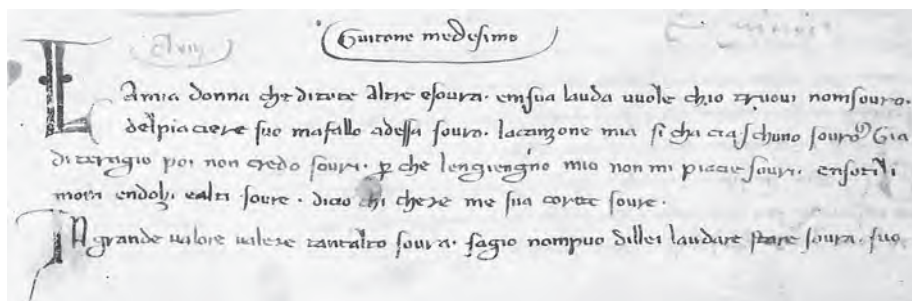 Guitone medesimo
LAmia donna che ditute altre esoura· emsua lauda uuole chio truoui nomsouro.
delpiaciere suo mafallo adessa soura· lacanzone mia si cha ciaschuno souro Gia
diteragio poi non credo soura· p che lengiengno mio non mi piacie soura· ensotili
mota endolzi ealti soure· dicio chi chere me sua corte soure·
IN grande ualore ualere tantalto soura· sagio nompuo dillei laudare stare soura· suo